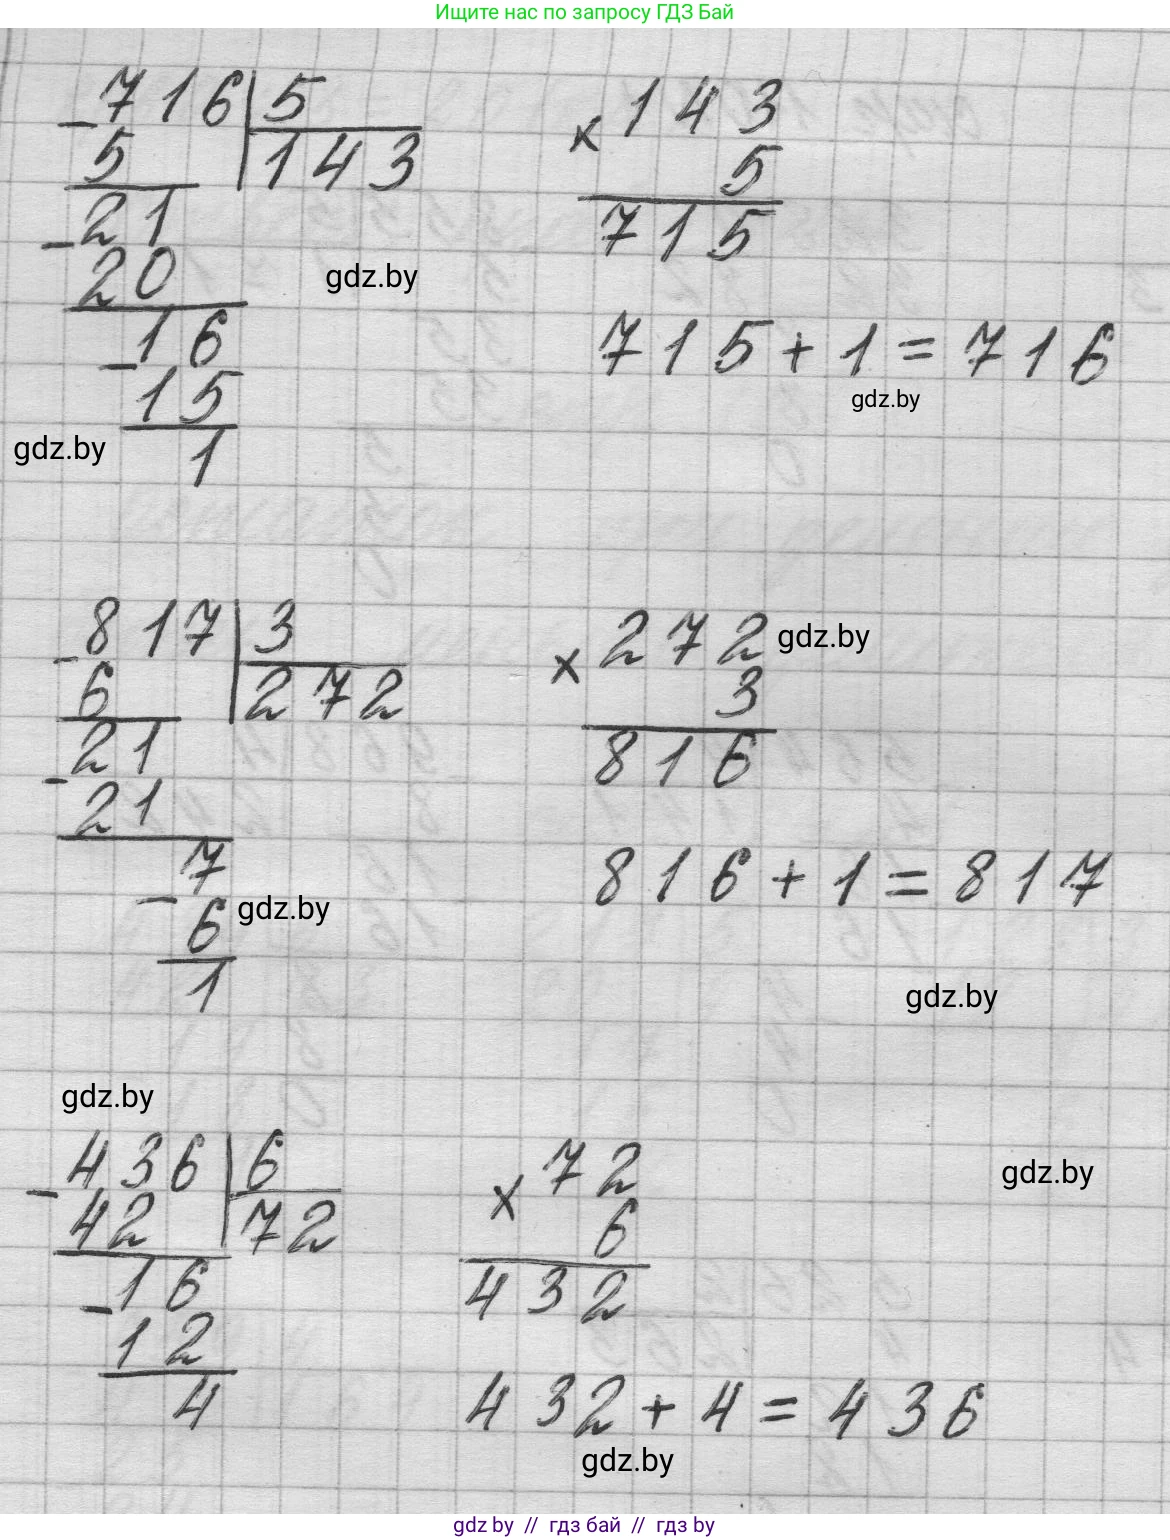 Ищите нас по запросу ГДЗ Бай
716 5
5 143
21
20
16
15
1
143
× 5
715
715 + 1 = 716
gdz.by
gdz.by
gdz.by
817 3
6 272
21
21
7
6
1
272
× 3
816
816 + 1 = 817
gdz.by
gdz.by
gdz.by
gdz.by
436 6
42 72
16
12
4
72
× 6
432
432 + 4 = 436
gdz.by
gdz.by
gdz by // гдз бай // гдз by